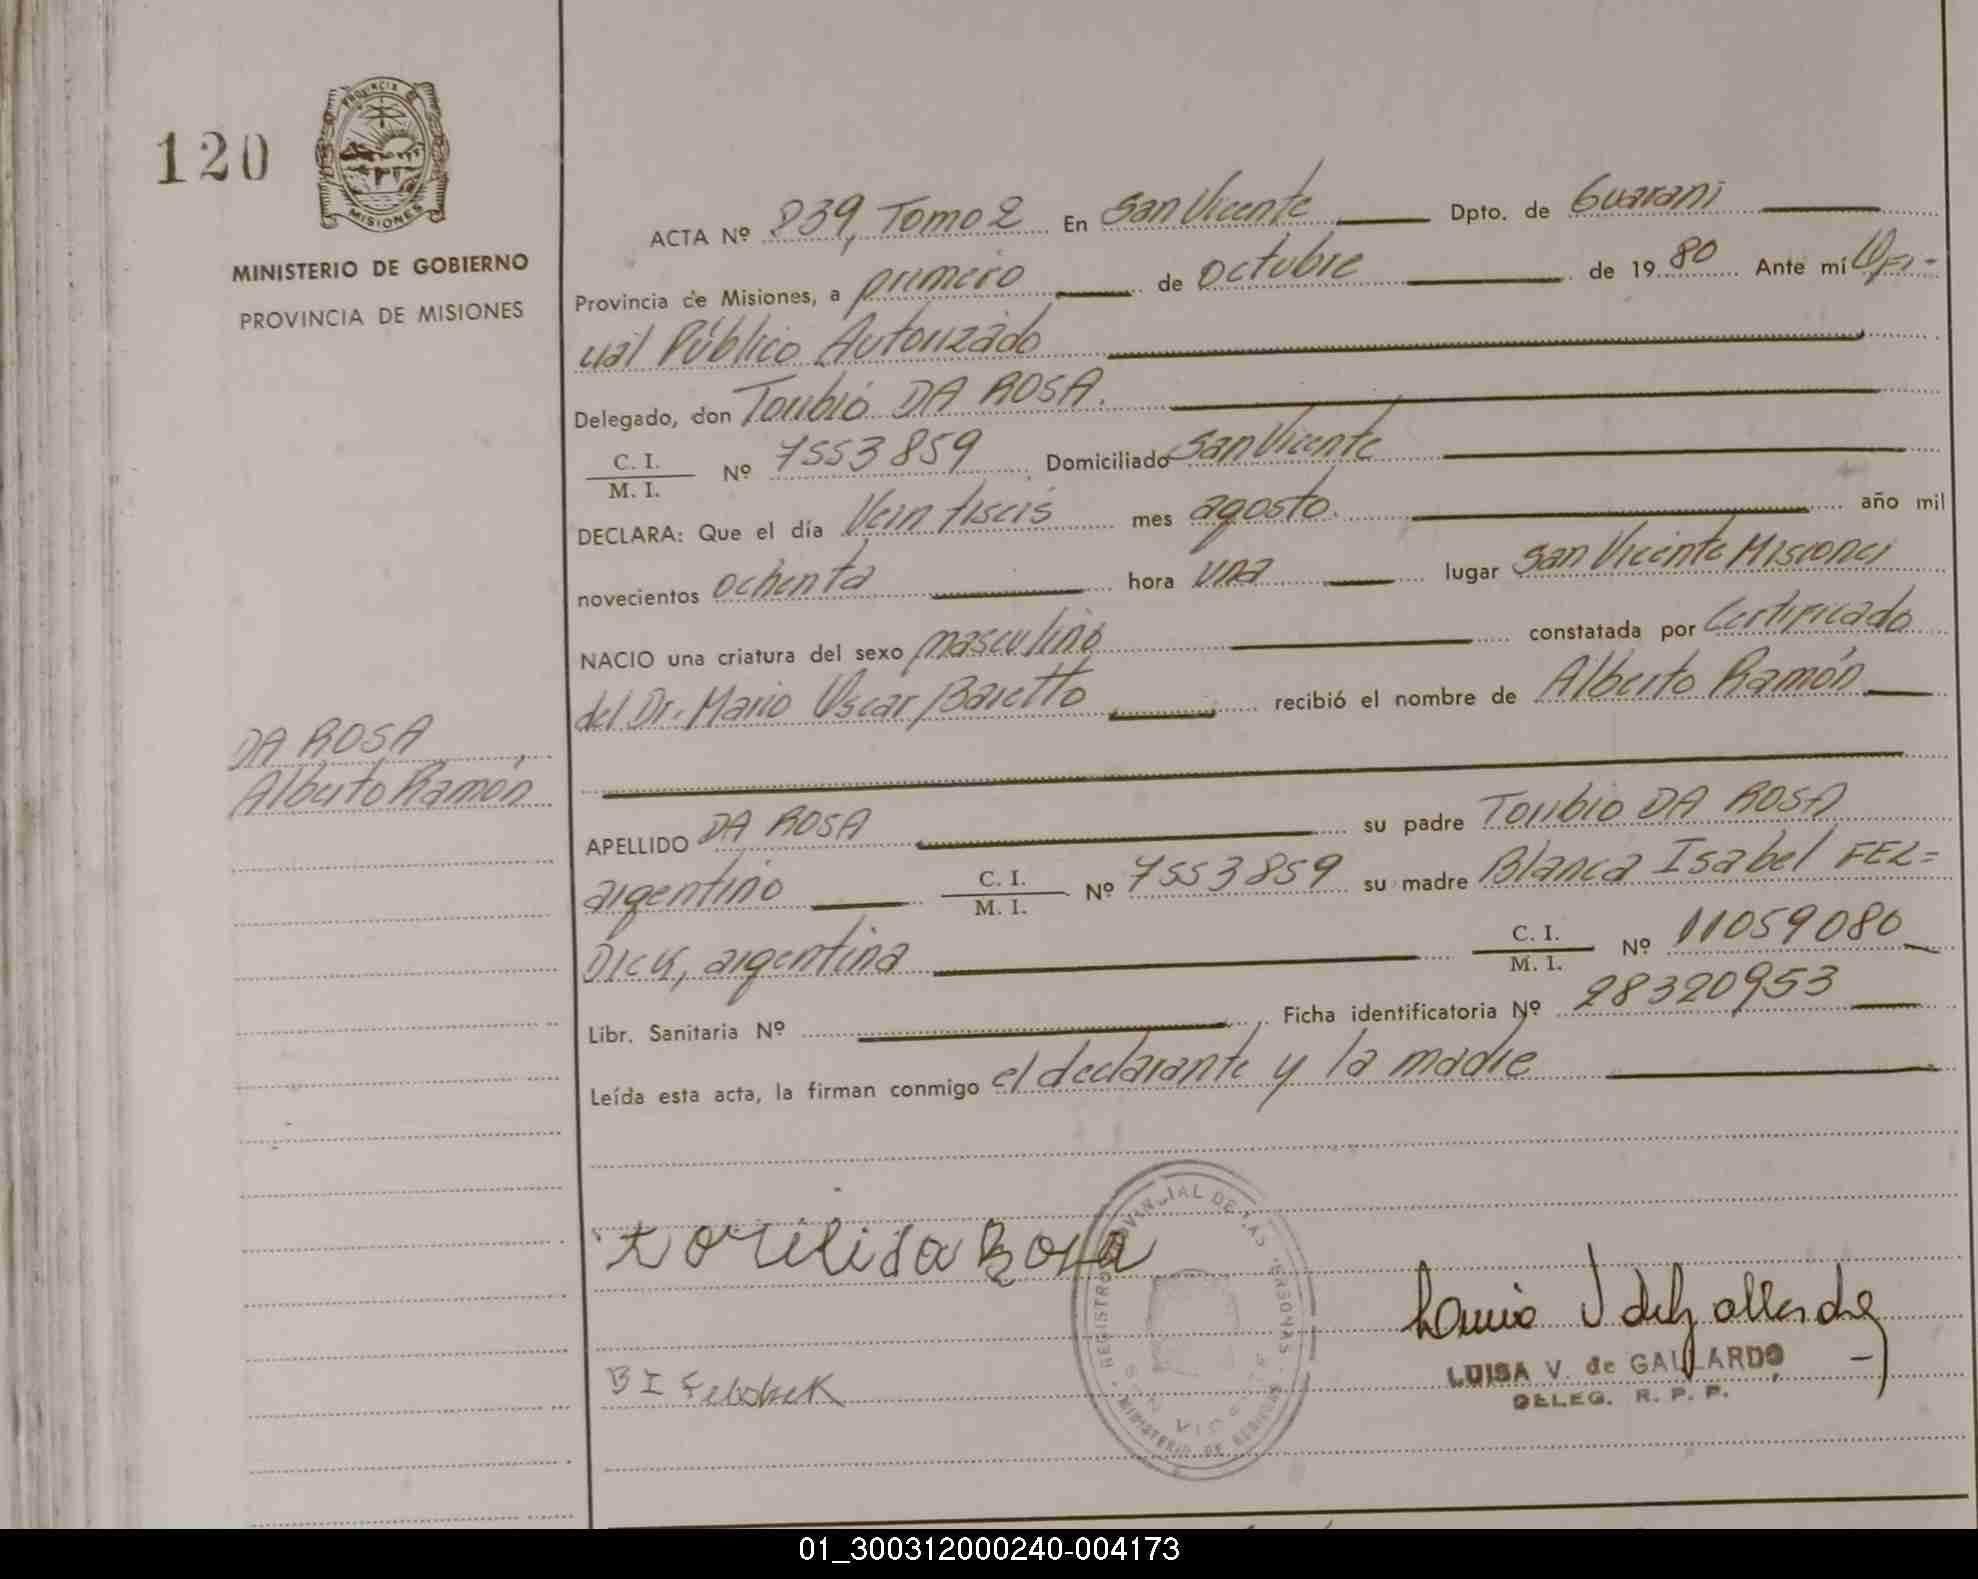 120
PROVINCIA DE
MISIONES
MINISTERIO DE GOBIERNO
PROVINCIA DE MISIONES
ACTA Nº 839, Tomo 2 En San Vicente Dpto. de Guarani
Provincia de Misiones, a primero de octubre de 1980 Ante mi Ofi-
cial Público Autorizado
Delegado, don Toribio DA ROSA.
C. I.
M. I. Nº 7553859 Domiciliado San Vicente
DECLARA: Que el día Veintiseis mes agosto. año mil
novecientos ochenta hora una lugar San Vicente Misiones
NACIO una criatura del sexo masculino constatada por Certificado
del Dr. Mario Oscar Baretto recibió el nombre de Alberto Ramón
DA ROSA,
Alberto Ramón
APELLIDO DA ROSA su padre Toribio DA ROSA
argentino C. I.
M. I. Nº 7553859 su madre Blanca Isabel FEL=
argentina C. I.
M. I. Nº 11059080
Libr. Sanitaria Nº Ficha identificatoria Nº 28320953
Leída esta acta, la firman conmigo el declarante y la madre
REGISTRO PROVINCIAL DE LAS PERSONAS
MINISTERIO DE
LUISA V. de GALLARDO
DELEG. R. P. P.
B I
01_300312000240-004173